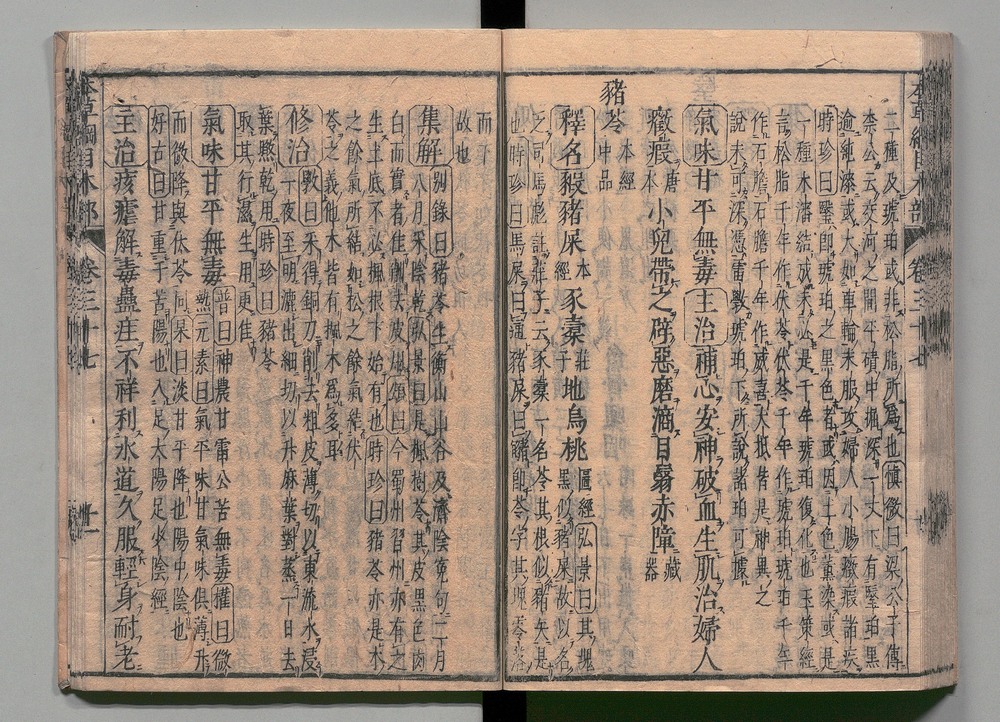 二種及琥珀或非松脂所爲也慎微曰梁公子傳
柰公云交河之間平磧中掘深一丈下有瑿珀黑
逾純漆或大如車輪末服攻婦人小腸癥瘕諸疾
時珍曰瑿即琥珀之黑色者或因土色熏染或是
一種木瀋結成未必是千年琥珀復化也玉策經
言松脂千年作伏苓伏苓千年作琥珀琥珀千年
作石膽石膽千年作威喜大抵皆是神異之
說未可深憑雷斆琥珀下所說諸珀可據
氣味甘平無毒主治補心安神破血生肌治婦人
癥瘕唐本小兒帶之辟惡磨滴目翳赤障藏器
豬苓本經中品
釋名豭豬屎本經豕橐莊子地烏桃圖經弘景曰其塊黑似豬屎故以名
之司馬彪註莊子云豕橐一名苓其根似豬矢是
也時珍曰馬屎曰通豬屎曰苓即苓字其塊零落
而下
故也
集解別錄曰豬苓生衡山山谷及濟陰寃句二月
八月采陰乾弘景曰是楓樹苓其皮黑色肉
白而實者佳削去皮用頌曰今蜀州習州亦有之
生土底不必楓根下始有也時珍曰豬苓亦是木
之餘氣所結如松之餘氣結伏
苓之義他木皆有楓木爲多耳
修治斆曰采得銅刀削去粗皮薄切以東流水浸
一夜至明漉出細切以升麻葉對蒸一日去
葉㬠乾用時珍曰豬苓
取其行濕生用更佳
氣味甘平無毒普曰神農甘雷公苦無毒權曰微
熱元素曰氣平味甘氣味俱薄升
而微降與伏苓同杲曰淡甘平降也陽中陰也
好古曰甘重于苦陽也入足太陽足少陰經
主治痎瘧解毒蠱疰不祥利水道久服輕身耐老
本草綱目木部 卷三十七